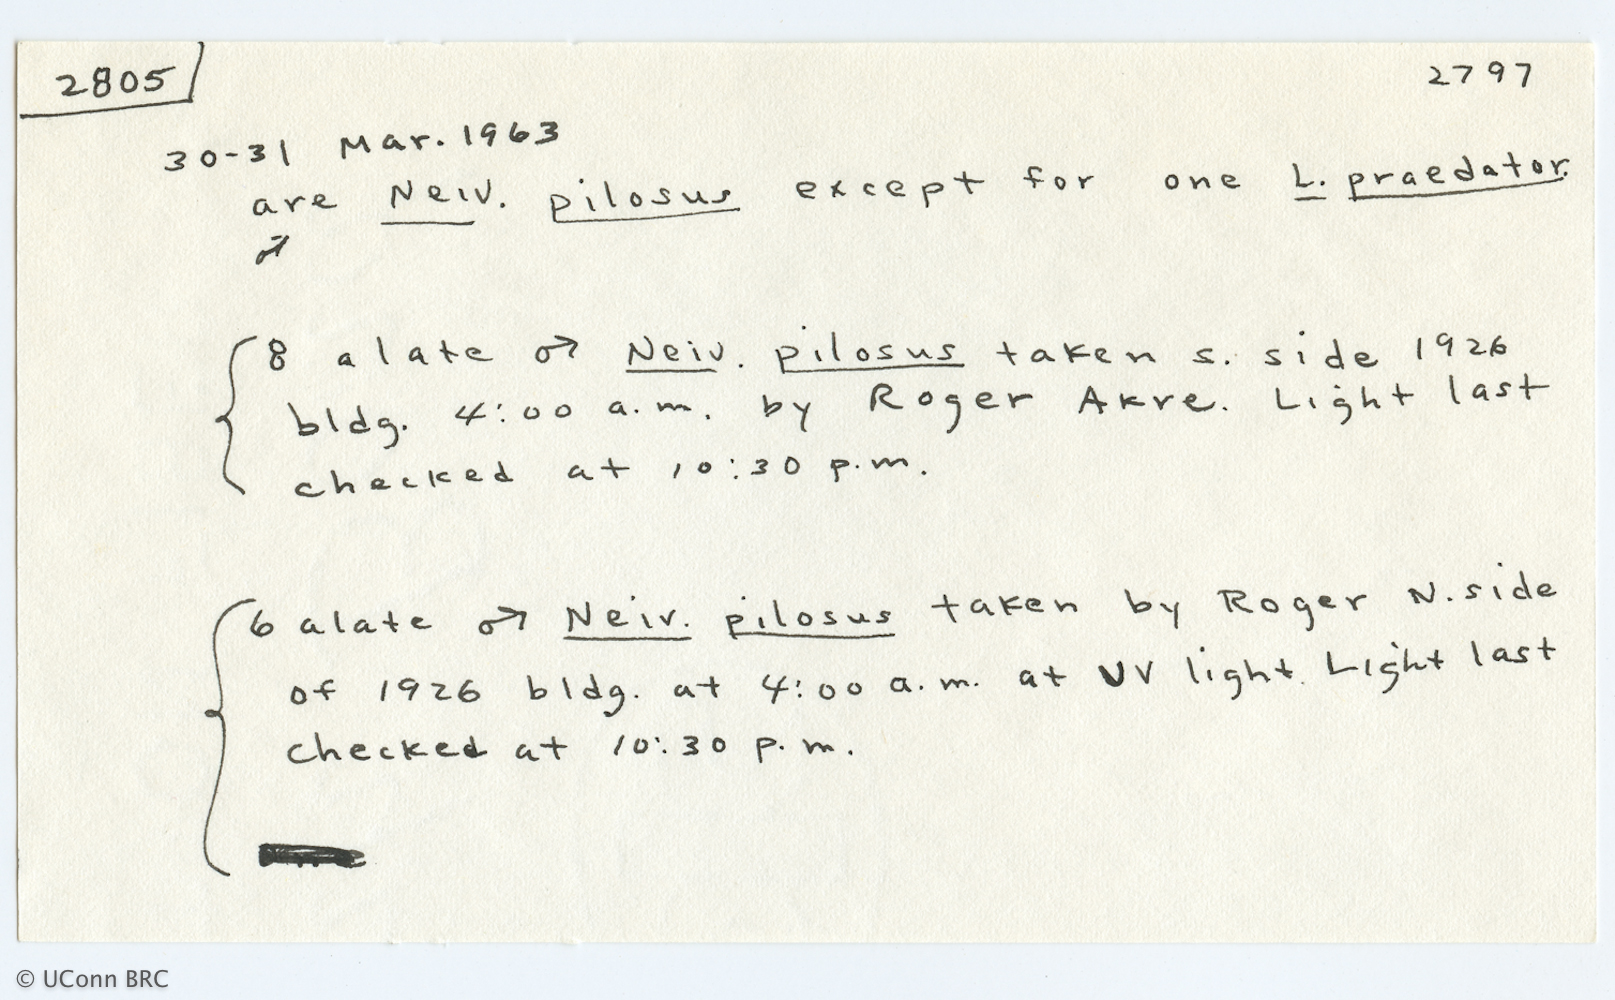 2805
2797
30-31 Mar. 1963
are Neiv. pilosus except for one L. praedator.
♂
8 alate ♂ Neiv. pilosus taken s. side 1926
bldg. 4:00 a.m. by Roger Akre. Light last
checked at 10:30 p.m.
6 alate ♂ Neiv. pilosus taken by Roger N. side
of 1926 bldg. at 4:00 a.m. at UV light. Light last
checked at 10:30 p.m.
© UConn BRC